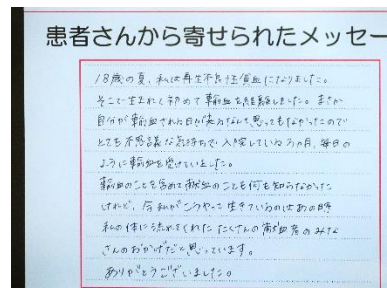 患者さんから寄せられたメッセー
18歳の夏、私は再生不良性貧血になりました。
そこで生まれて初めて輸血を経験しました。まさか
自分が輸血される日が来るなんて思ってもなかったので
とても不思議な気持ちで、入院していた3ヵ月、毎日の
ように輸血を受けていました。
輸血のことを含めて献血のことも何も知らなかった
けれど、今私がこうやって生きているのはあの時
私の体に流れてくれたたくさんの献血者のみな
さんのおかげだと思っています。
ありがとうございました。